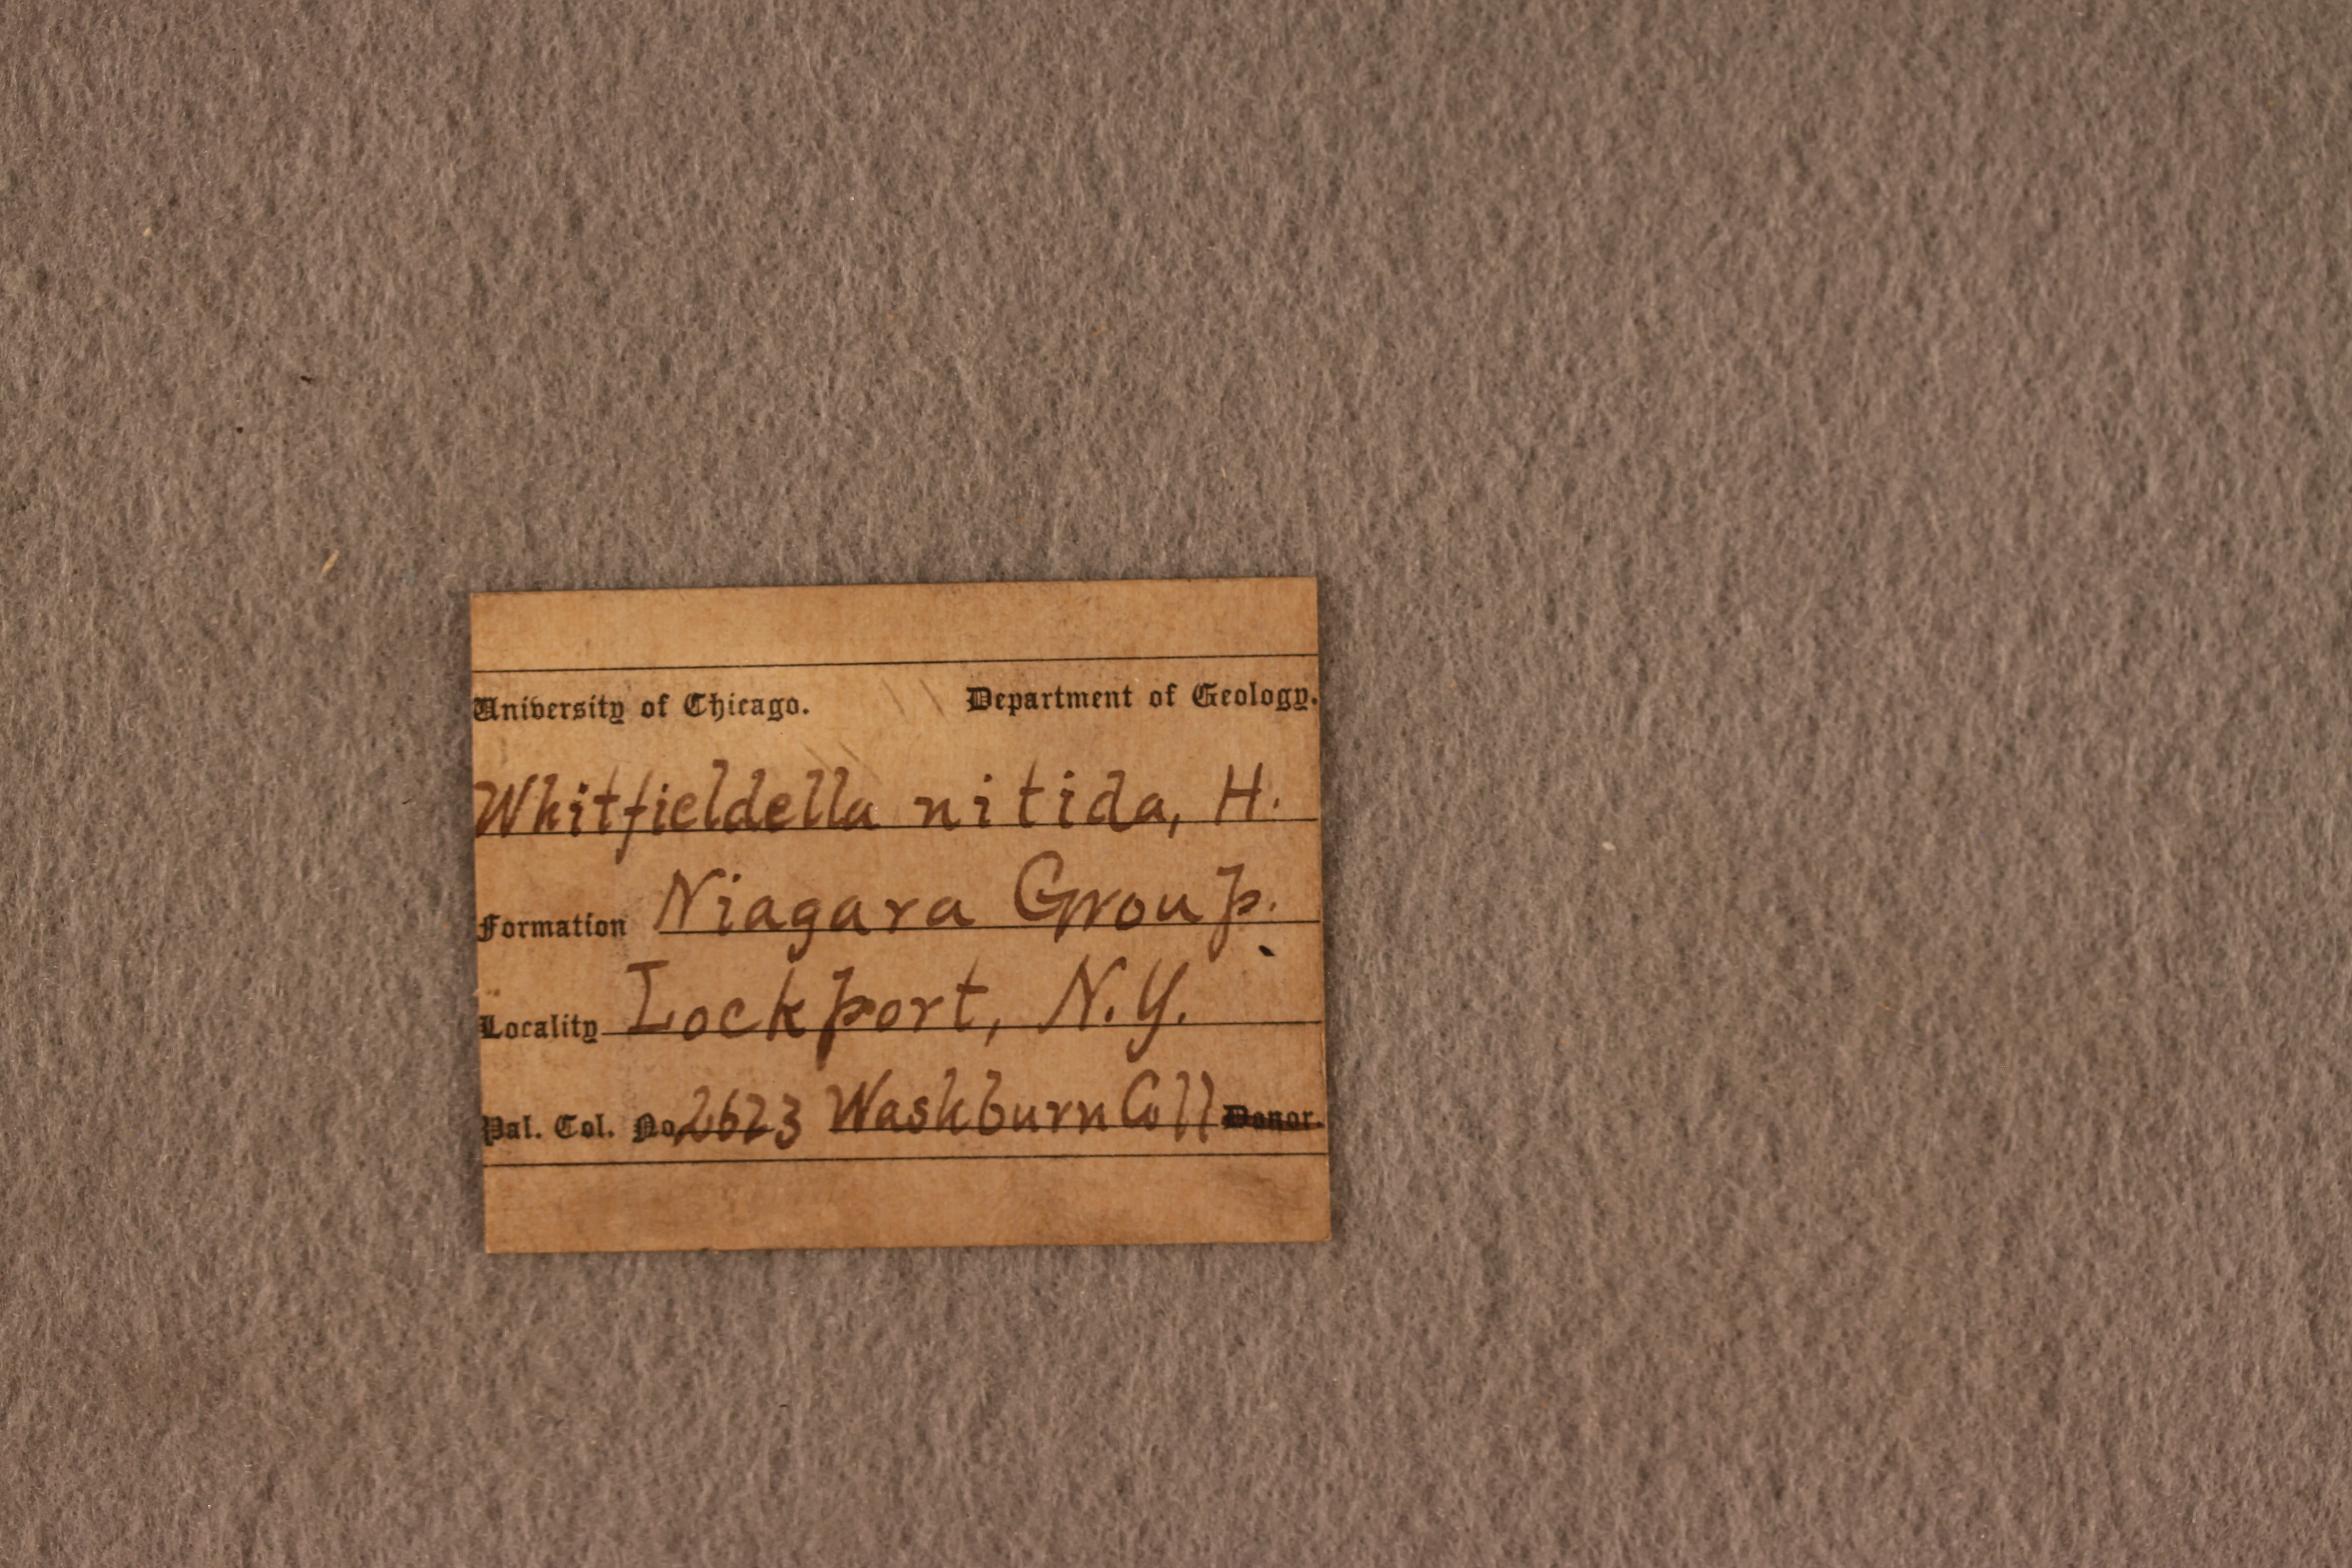 University of Chicago. Department of Geology.
Whitfieldella nitida, H.
Formation Niagara Group.
Locality Lockport, N.Y.
Pal. Col. No. 2623 Washburn Coll Donor.